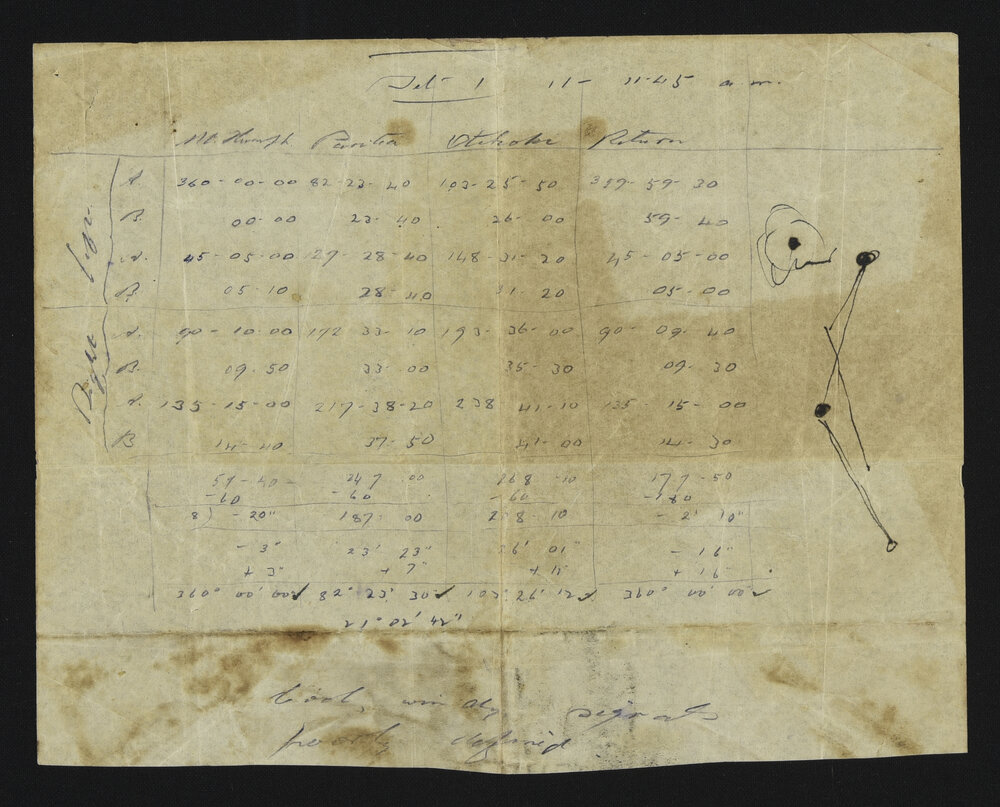 Set 1 11 - 11-45 a.m.
Paritea Return
Right Left
A. 360-00-00 82-23-40 103-25-50 359-59-30
B. 00-00 23-40 26-00 59-40
A. 45-05-00 127-28-40 148-31-20 45-05-00
B. 05-10 28-40 31-20 05-00
A. 90-10-00 172 33-10 193-36-00 90-09-40
B. 09-50 33-00 35-30 09-30
A. 135-15-00 217-38-20 238 41-10 135-15-00
B 14-40 37-50 41-00 14-30
59-40 247 00 268-10 177-50
-60 -60 -60 -180
8) -20" 187 00 208 10 -2' 10"
-3" 23' 23" 26' 01" -16"
+3" +7" +11" +16"
360. 00, 00 82. 23, 30 103. 26, 12 360. 00, 00
21. 02, 42"
Cool, windy, signals
poorly defined